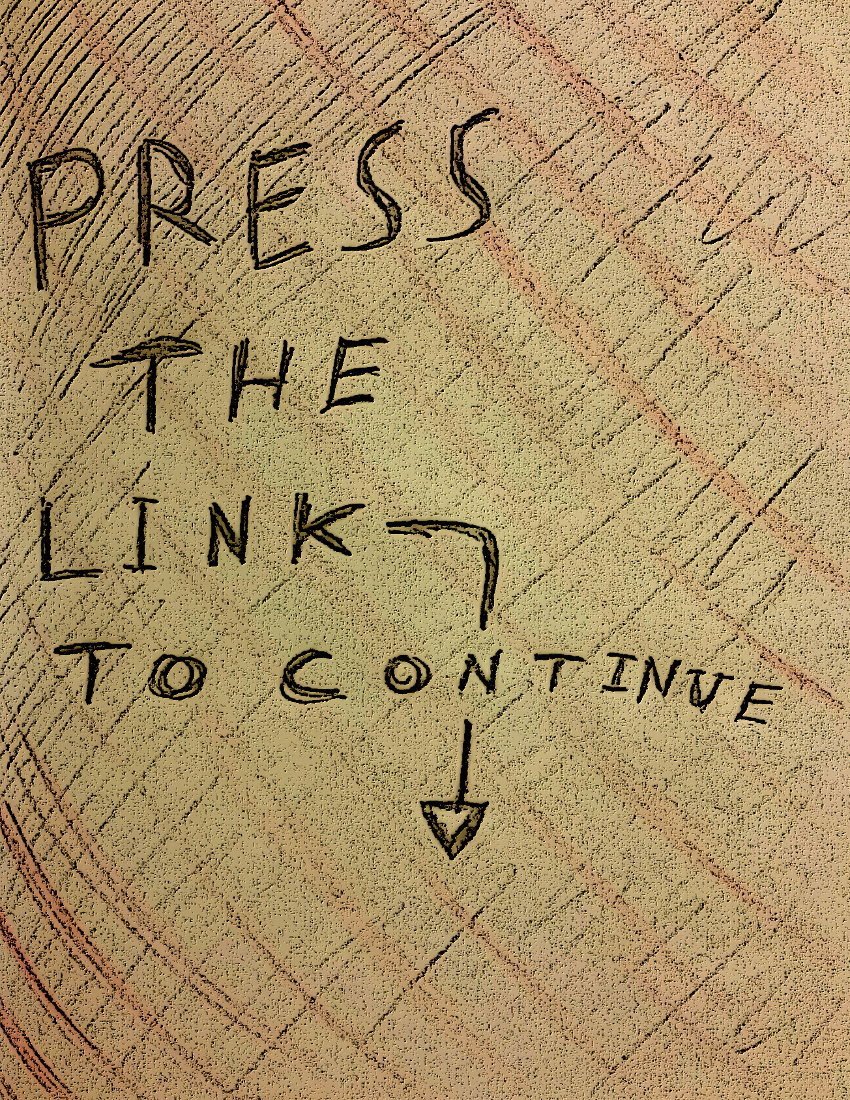 PRESS
THE
LINK
TO CONTINUE